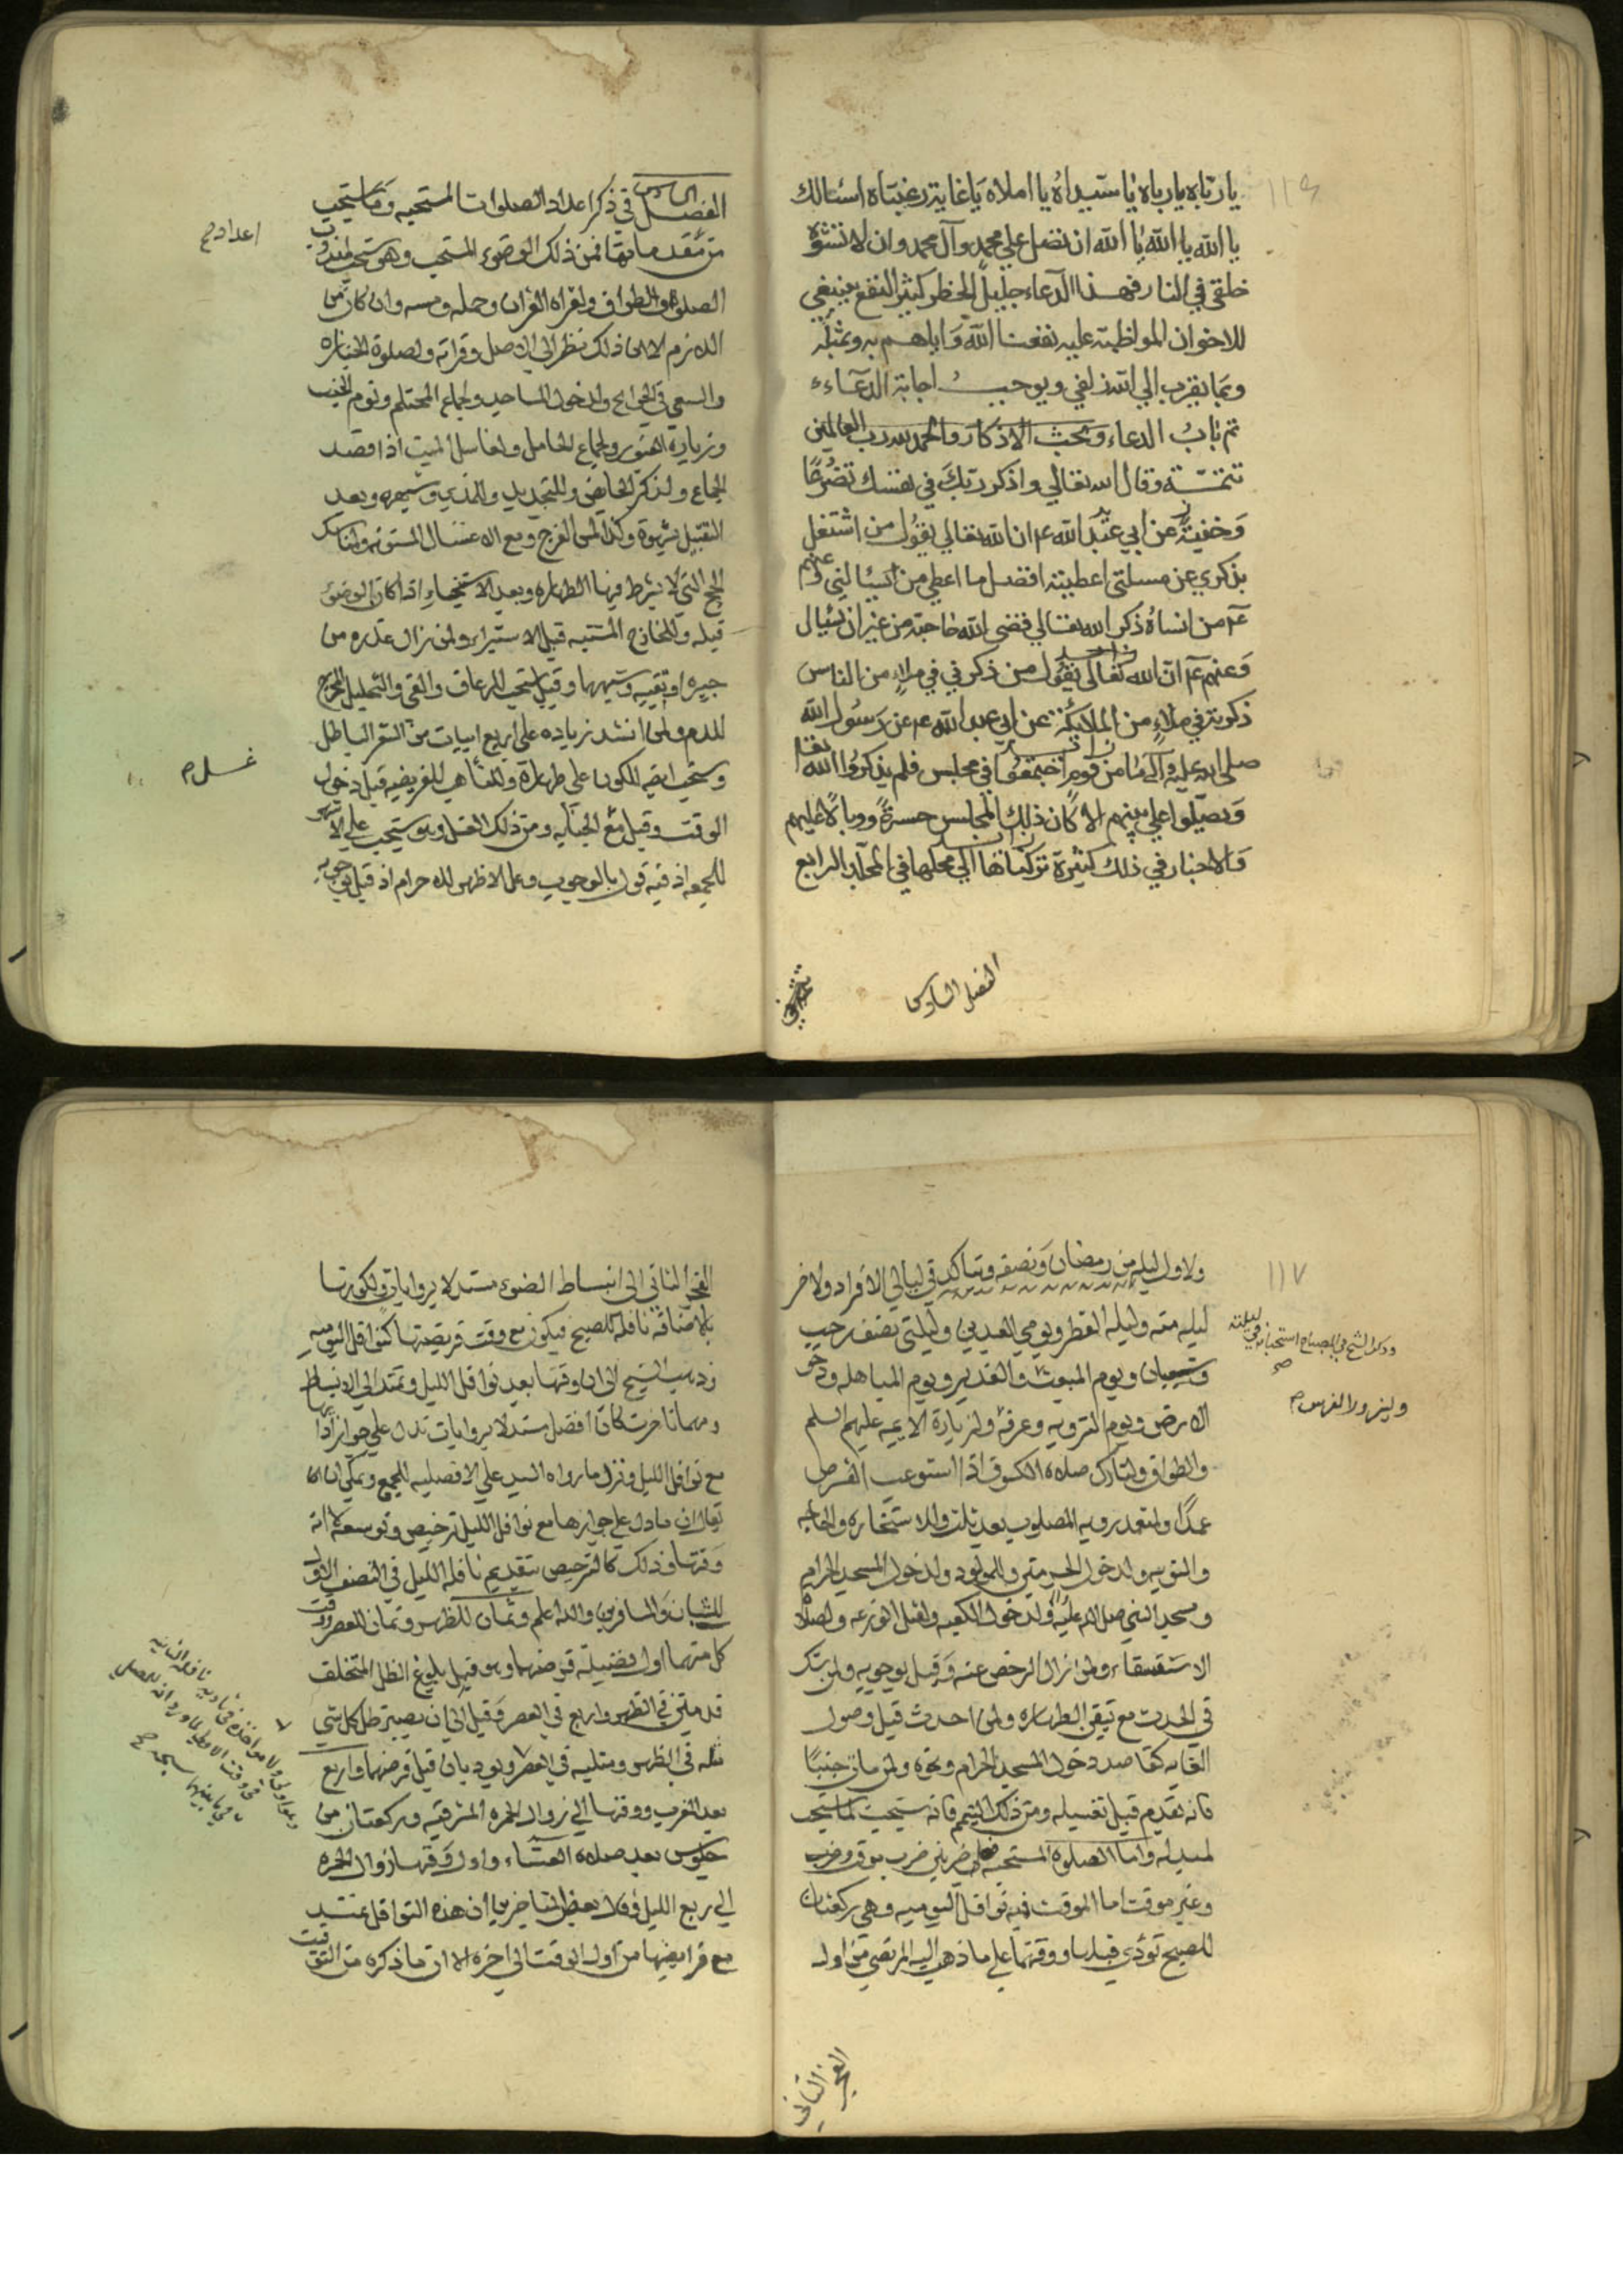 ١١٦
يا رباه يا رباه يا سيداه يا املاه يا غاية رغبتاه اسئالك
يا الله يا الله يا الله ان تصل علي محمد وآل محمد وان لا تشوه
خلقي في النار فهذا الدعاء جليل الخطر كثير النفع ينبغي
للاخوان المواظبته عليه نفعنا الله واياهم به وبمثله
ومما يقرب الي الله زلفي ويوجب اجابة الدعاء
تم باب الدعاء وبحث الاذكار والحمد لله رب العالمين
تتمـة وقال الله تعالي واذكر ربك في نفسك تضرعًا
وخفية عن ابي عبد الله ع م ان الله تعالي يقول من اشتغل
بذكري عن مسلتي اعطيته افضل ما اعطي من يسئالني وعنهم
ع م من انساه ذكر الله تعالي قضي الله حاجته من غير ان يسئال
وعنهم ع م ان الله تعالى يقول من ذكرني في ملاء من الناس
ذكرته في ملاء من الملايكة عن ابي عبد الله ع م عن رسول الله
صلى الله عليه وآله ما من قوم اجتمعوا في مجلس فلم يذكروا الله تعا
ويصلوا علي نبيهم الا كان ذلك المجلس حسرةً ووبالاً عليهم
والاخبار في ذلك كثيرة تركناها الي محلها في المجلد الرابع
الفصل السادس
الفصل السادس في ذكر اعداد الصلوات المستحبه وما يستحب
اعداد ح
من مقدماتها فمن ذلك الوضوء المستحب وهو يستحب لمندوب
الصلوة والطواف ولقراه القران وحمله ومسه وان كان من
اللازم الا ان ذلك نظرا الي الاصل وقراته ولصلوة الجنازه
والسعي في الحوايج ولدخول المساجد ولجماع المحتلم ونوم الجنب
وزيارة القبور ولجماع الحامل ولغاسل الميت اذا قصد
الجماع ولذكر الحايض وللتجديد وللمذي وشبهه وبعد
التقبيل بشهوة وكذا لمس الفرج ومع الاغتسال المسنونه ولمناسك
الحج التي لا يشرط فيها الطهاره وبعد الاستنجاء اذا كان الوضوء
قبله وللخارج المشتبه قبل الاستبراء ولمن زال عذره من
جبيره او تقيه وشبهها وقيل يستحب للرعاف والقي والتخليل المخرج
للدم ولمن انشد زياده على اربع ابيات من الشعر الباطل
ويستحب ايضه للكون على طهارة وللتأهب للفريضه قبل دخول
غسل م
الوقت وقبل مع الجنابه ومن ذلك الغسل وهو يستحب علي الاشهر
للجمعه اذ فيه قول بالوجوب وعلى الاظهر للاحرام اذ قيل بوجوبه
١١٧
ولاول ليله من رمضان ونصفه وتتاكد في ليالي الافراد ولاخر
ليله منه وليله الفطر ويومي العيدين وليلتي نصف رجب
وذكر الشيخ في المصباح استحبابه في ليلته صح
وشعبان ويوم المبعوث والغدير ويوم المباهله ودحو
وليزور الفرس م
الارض ويوم التروبه وعرفه ولزيارة الايميه عليهم السلم
والطواف ولتارك صلاه الكسوف اذا استوعب القرص
عمدًا ولتعمد رويه المصلوب بعد ثلث وللاستخاره والحاجه
والتوبه ولدخول الحرمتين وللمولود ولدخول المسجد الحرام
ومسجد النبي صلى الله عليه ولدخول الكعبه ولقتل الوزعه ولصلاه
الاستسقاء ولمن نزال الرخص عنه وقيل بوجوبه ولمن شك
في الحدث مع تيقن الطهاره ولمن احدث قبل وصول
الغايه كقاصد دخول المسجد الحرام ونحوه ولمن مات جنبًا
فانه يقدم قبل تغسيله ومن ذلك التيمم فانه يستحب لما يستحب
لمبدله واما الصلوة المستحبه فعلى ضربين ضرب موقت وضرب
وغير موقت اما الموقت فيه نوافل اليوميه وهي ركعتان
للصبح تؤدي قبلها ووقتها علي ما ذهب اليه المرتضي من اوله
الفجر الثاني
الفجر الثاني الى انبساط الضوء مستدلا بروايات ولكونها
بالاضافه نافله للصبح فيكون مع وقت فريضتها كنوافل اليوميه
وذهب الشيخ الى ان وقتها بعد نوافل الليل وتمتد الي الانبساط
ومهما تاخرت كان افضل مستدلا بروايات تدل علي جواز اداتها
مع نوافل الليل ونزل ما رواه السيد علي الافضليه للجمع ويمكن ان
يقال ان ما دل علي جوازها مع نوافل الليل ترخيص وتوسعه لا انه
وقتها وذلك كالترخيص بتقديم نافله الليل في النصف الاول
للشبان والمسافرين والله اعلم وثمان للظهر وثمان للعصر وقت
كل منهما اول فضيلة فرضهما وهو قبل بلوغ الظل المتخلف
قدمين في الظهر واربع في العصر وقيل الي ان يصير ظل كل شي
مثله في الظهر ومثليه في العصر ويوديان قبل فرضهما واربع
بعد المغرب ووقتها الي زوال الحمره المشرقيه وركعتان من
جلوس بعد صلاة العشاء واول وقتها زوال الحمره
الي ربع الليل وقال بعض المتاخرين ان هذه النوافل تمتد
مع فرايضها من اول الوقت الى اخره الا ان ما ذكره من التوقيت